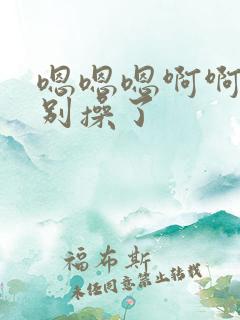 嗯嗯嗯啊啊
别操了
福布斯
未经同意禁止转载